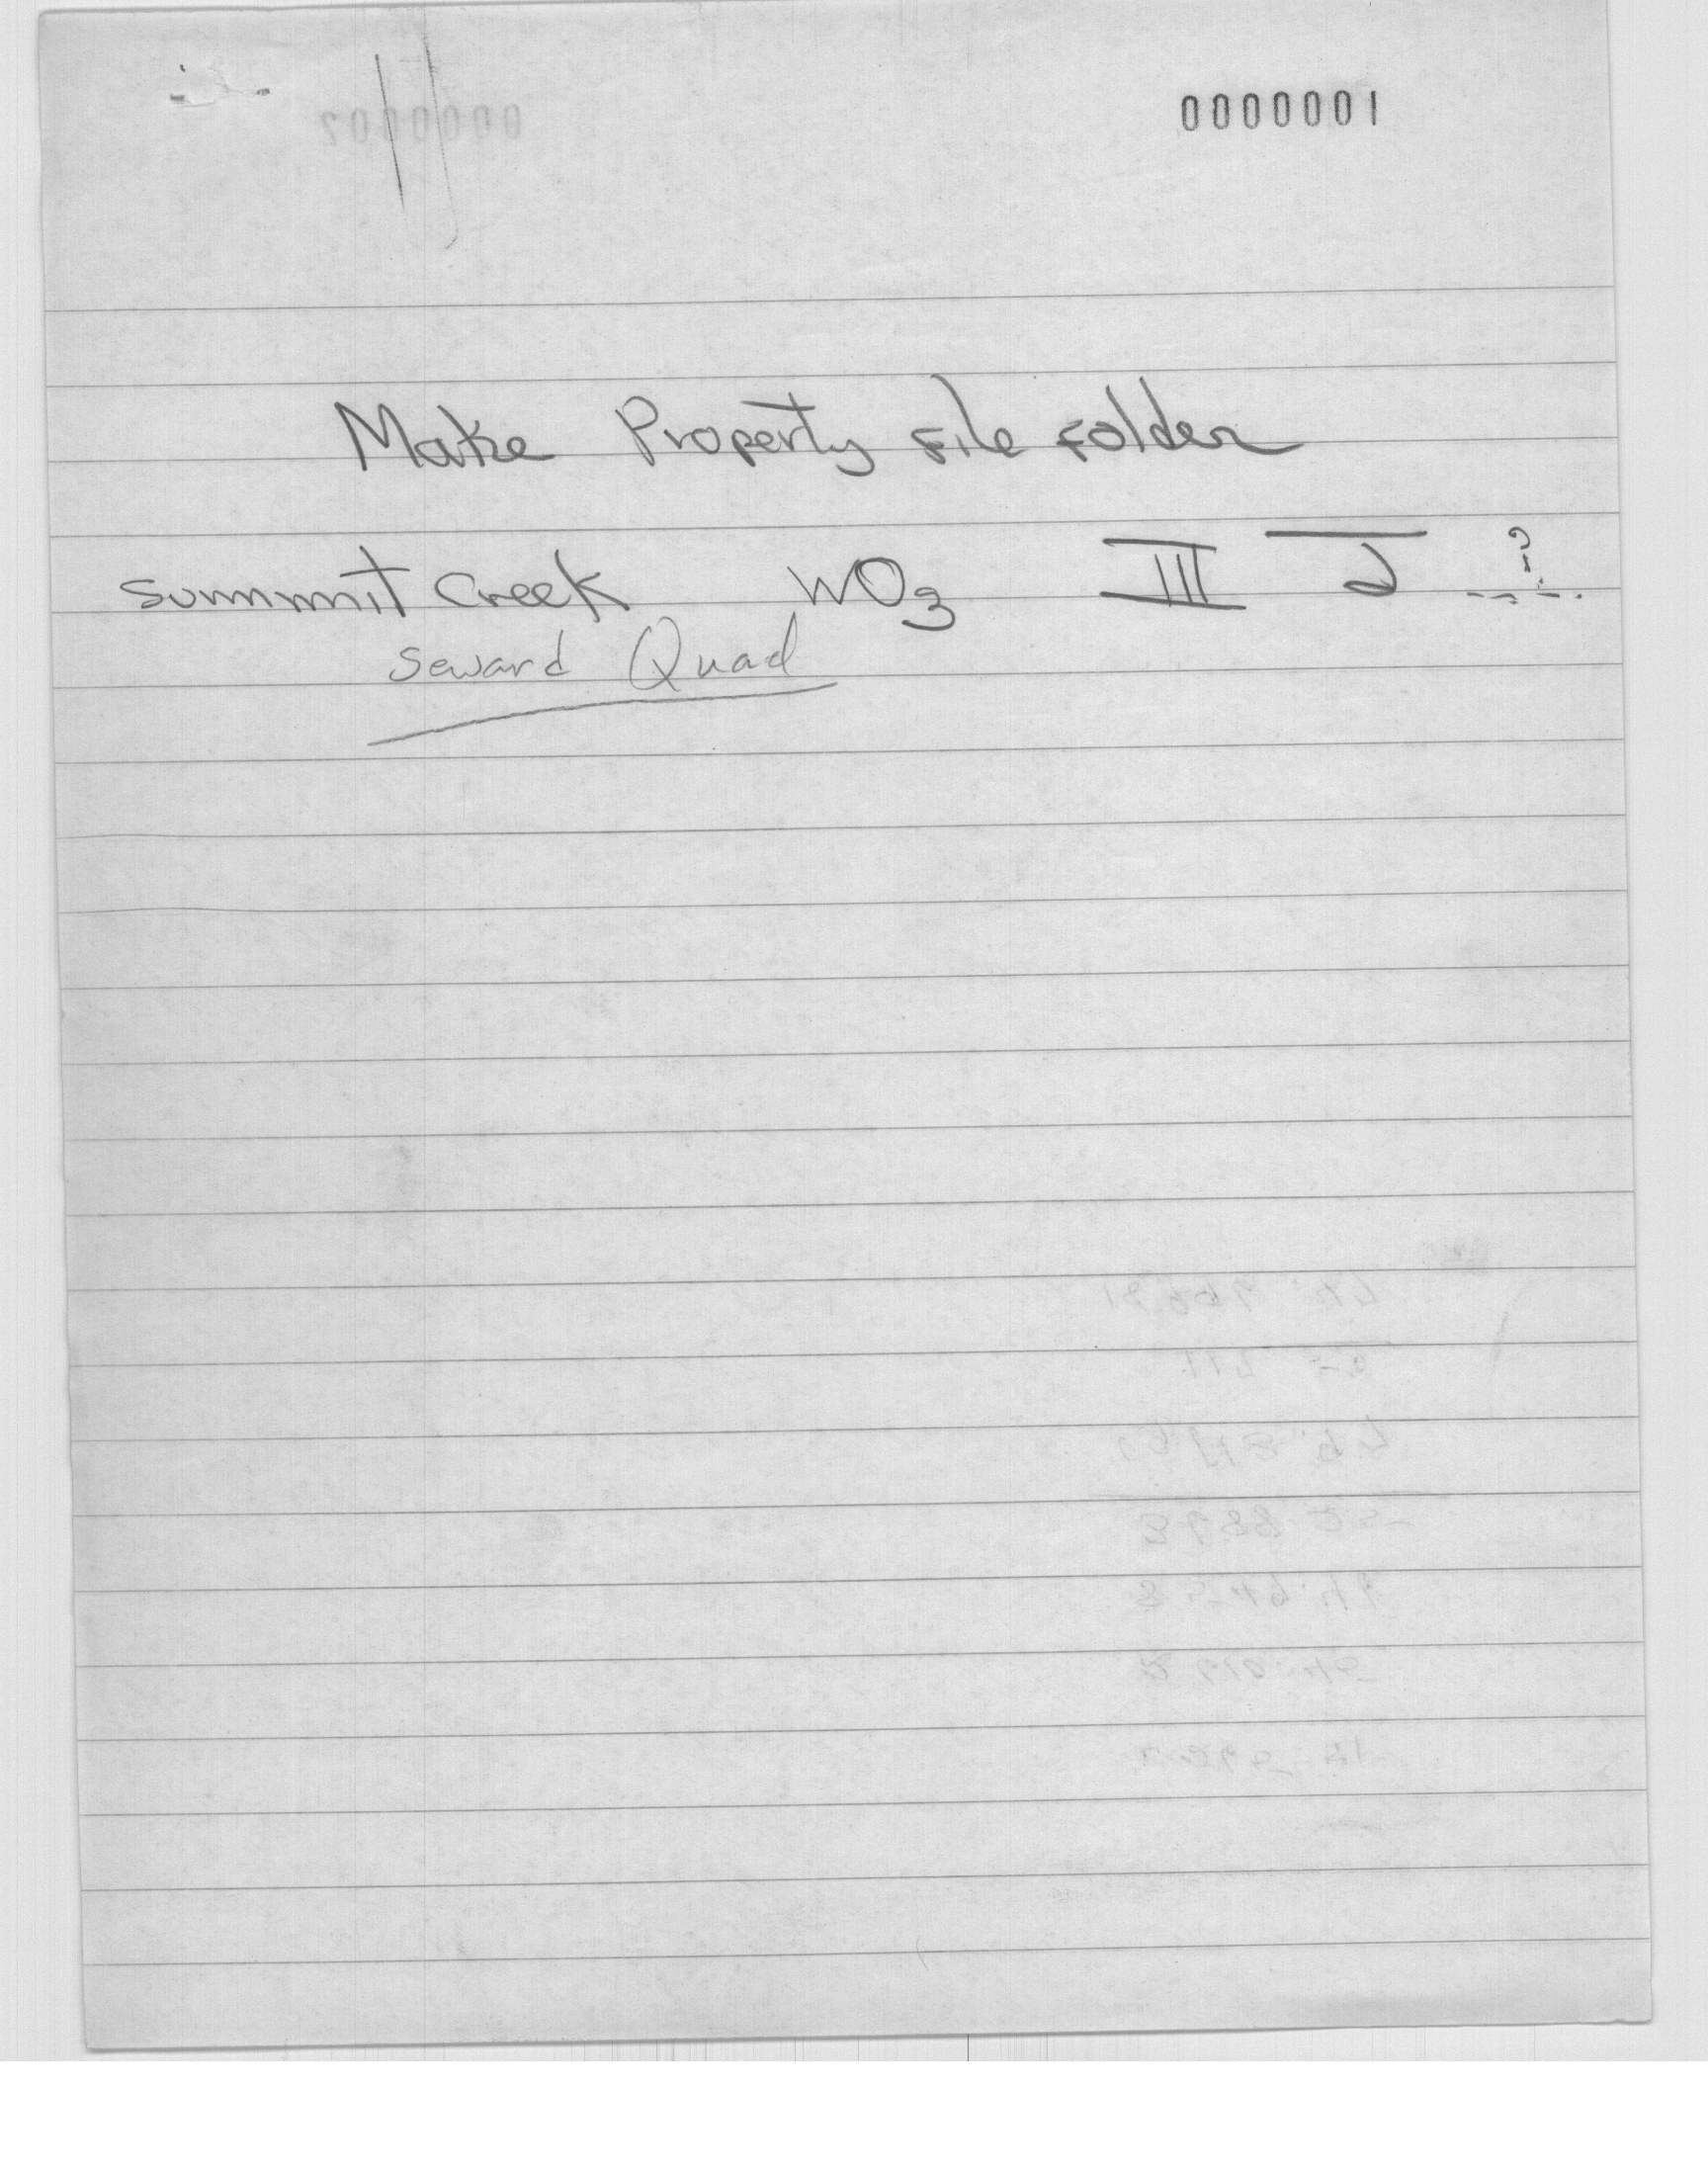 0000001
Make Property file folder
Summit Creek WO3 III J ?
Seward Quad